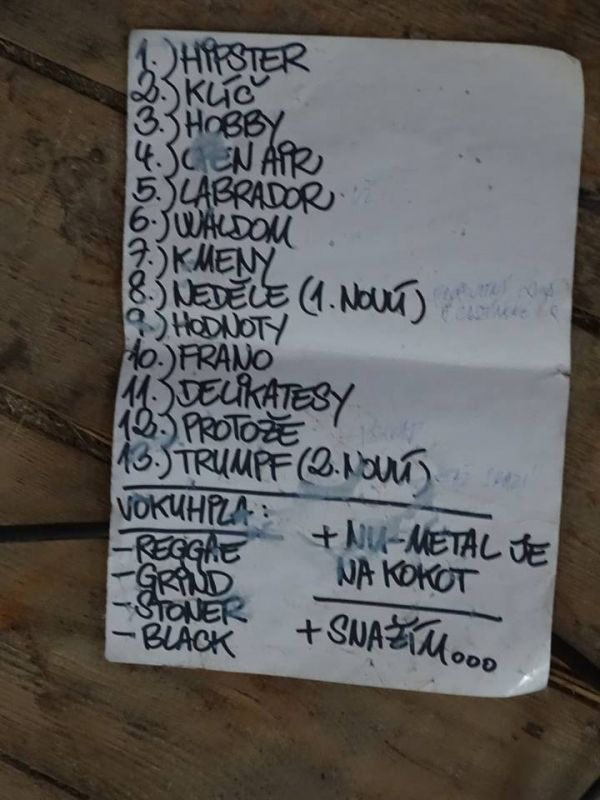 1.) HIPSTER
2.) KLÍČ
3.) HOBBY
4.) OPEN AIR
5.) LABRADOR
6.) WALDOM
7.) KMENY
8.) NEDĚLE (1. NOVÝ)
9.) HODNOTY
10.) FRANO
11.) DELIKATESY
12.) PROTOŽE
13.) TRUMPF (2. NOVÝ)
VOKUHPLA:
- REGGAE
- GRIND
- STONER
- BLACK
+ NU-METAL JE
NA KOKOT
+ SNAŽÍM...